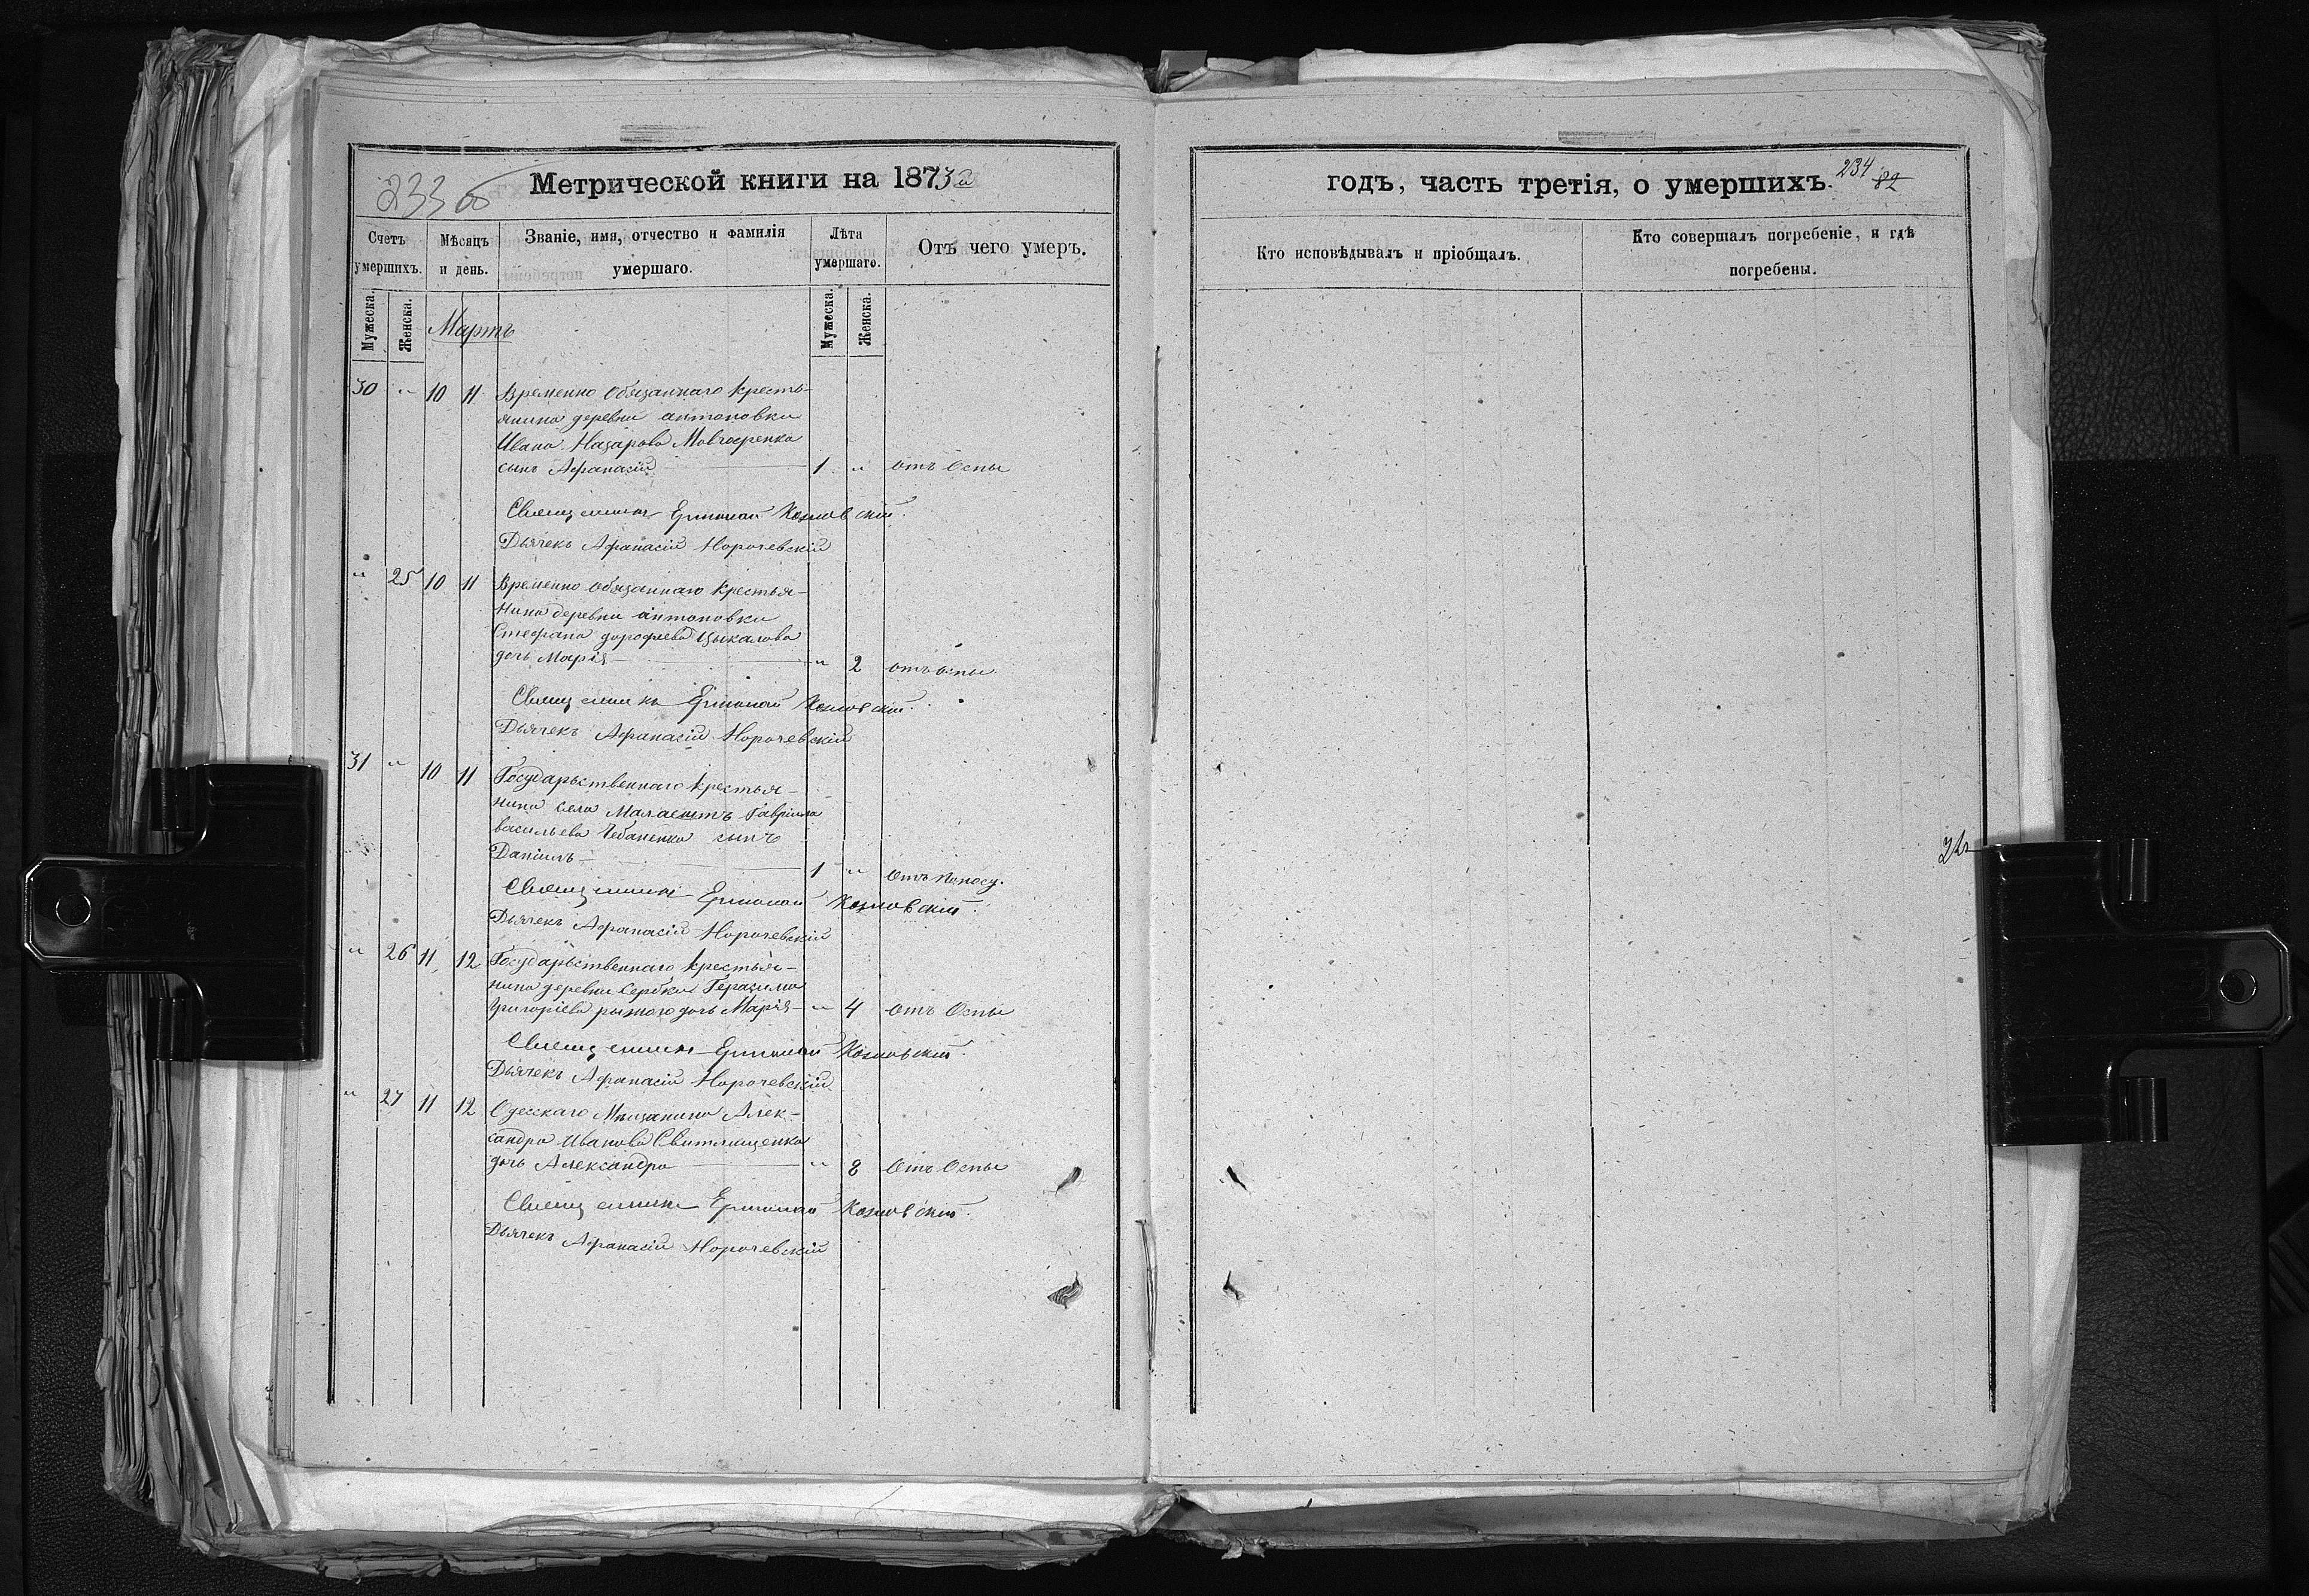 233 об
Метрической книги на 1873й
Счетъ умершихъ.
Мѣсяцъ и день.
Званіе, имя, отчество и фамилія умершаго.
Лѣта умершаго.
Отъ чего умеръ.
Мужеска.
Женска.
Мужеска.
Женска.
Мартъ
30 " 10 11 Временно Обязаннаго Кресть-
янина деревни антоновки
Ивана Назарова
сынъ Афанасій 1 " отъ Оспы
Священникъ Козловскій.
Дьячекъ Афанасій Норочевскій
" 25 10 11 Временно обязаннаго Крестья-
нина деревни антоновки
Стефана дорофеева Цыкалова
дочь Марія " 2 отъ оспы.
Священникъ Козловскій.
Дьячекъ Афанасій Норочевскій
31 " 10 11 Государственнаго Крестья-
нина села Малаештъ Гавріила
васильева Чебаненка сынъ
Даніилъ 1 " Отъ поносу.
Священникъ Козловскій.
Дьячекъ Афанасій Норочевскій
" 26 11 12 Государственнаго Крестья-
нина деревни Сербки Герасима
Григоріева рыжого дочь Марія " 4 отъ Оспы
Священникъ Козловскій.
Дьячекъ Афанасій Норочевскій
" 27 11 12 Одесскаго Мѣщанина Алек-
сандра Иванова Свитлищенка
дочь Александра " 8 Отъ Оспы
Священникъ Козловскій.
Дьячекъ Афанасій Норочевскій
годъ, часть третія, о умершихъ.
234
82
Кто исповѣдывалъ и пріобщалъ.
Кто совершалъ погребеніе, и гдѣ
погребены.